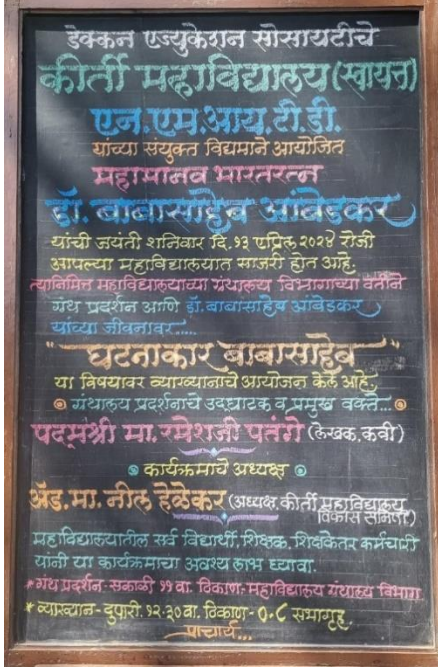 डेक्कन एज्युकेशन सोसायटीचे
कीर्ती महाविद्यालय (स्वायत्त)
एन.एम.आय.टी.डी.
यांच्या संयुक्त विद्यमाने आयोजित
महामानव भारतरत्न
डॉ. बाबासाहेब आंबेडकर
यांची जयंती शनिवार दि.१३ एप्रिल २०२४ रोजी
आपल्या महाविद्यालयात साजरी होत आहे.
त्यानिमित्त महाविद्यालयाच्या ग्रंथालय विभागाच्या वतीने
ग्रंथ प्रदर्शन आणि डॉ. बाबासाहेब आंबेडकर
यांच्या जीवनावर.....
"घटनाकार बाबासाहेब"
या विषयावर व्याख्यानाचे आयोजन केले आहे.
ग्रंथालय प्रदर्शनाचे उद्घाटक व प्रमुख वक्ते...
पद्मश्री मा. रमेशजी पतंगे (लेखक, कवी)
कार्यक्रमाचे अध्यक्ष
ॲड. मा. नील हेळेकर (अध्यक्ष, कीर्ती महाविद्यालय
विकास समिती)
महाविद्यालयातील सर्व विद्यार्थी, शिक्षक, शिक्षकेतर कर्मचारी
यांनी या कार्यक्रमाचा अवश्य लाभ घ्यावा.
* ग्रंथ प्रदर्शन - सकाळी ११ वा. ठिकाण - महाविद्यालय ग्रंथालय विभाग
* व्याख्यान - दुपारी. १२.३० वा. ठिकाण - ०-८ सभागृह.
प्राचार्य...